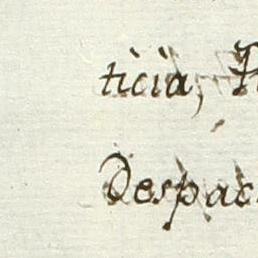 ticia,
Despac